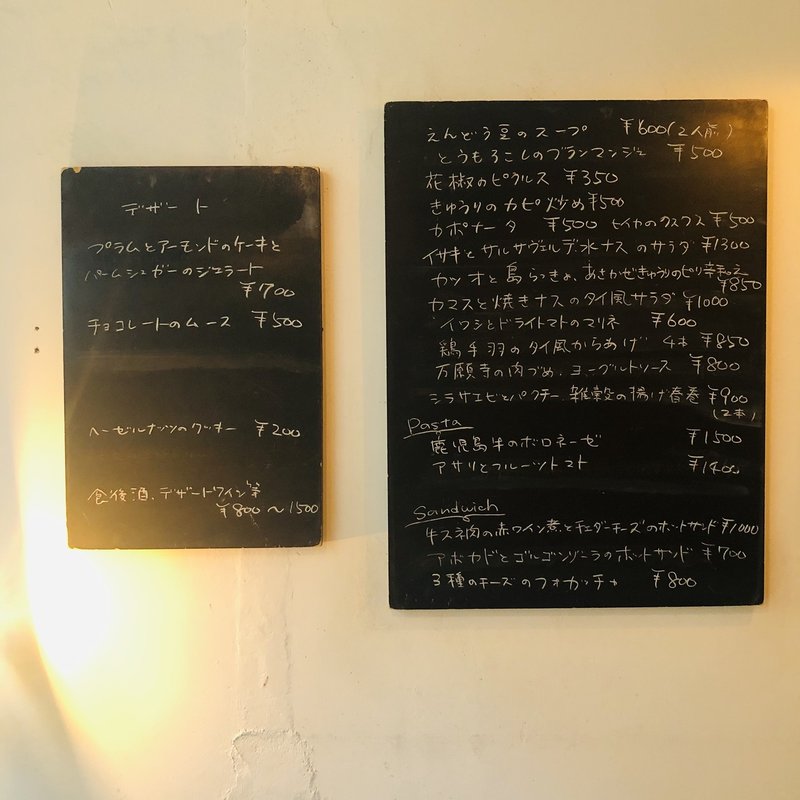 デザート
プラムとアーモンドのケーキと
パームシュガーのジェラート
¥700
チョコレートのムース ¥500
ヘーゼルナッツのクッキー ¥200
食後酒、デザートワイン等
¥800〜1500
えんどう豆のスープ ¥600(2人前)
とうもろこしのブランマンジェ ¥500
花椒のピクルス ¥350
きゅうりのカピ炒め ¥500
カポナータ ¥500 ヒイカのクスクス ¥500
イサキとサルサヴェルデ水ナスのサラダ ¥1300
カツオと島らっきょ、あさかぜきゅうりのピリ辛和え
¥850
カマスと焼きナスのタイ風サラダ ¥1000
イワシとドライトマトのマリネ ¥600
鶏手羽のタイ風からあげ 4本 ¥850
万願寺の肉づめ、ヨーグルトソース ¥800
シラサエビとパクチー、雑穀の揚げ春巻 ¥900
(2本)
Pasta
鹿児島牛のボロネーゼ ¥1500
アサリとフルーツトマト ¥1400
Sandwich
牛スネ肉の赤ワイン煮とチェダーチーズのホットサンド ¥1000
アボカドとゴルゴンゾーラのホットサンド ¥700
3種のチーズのフォカッチャ ¥800